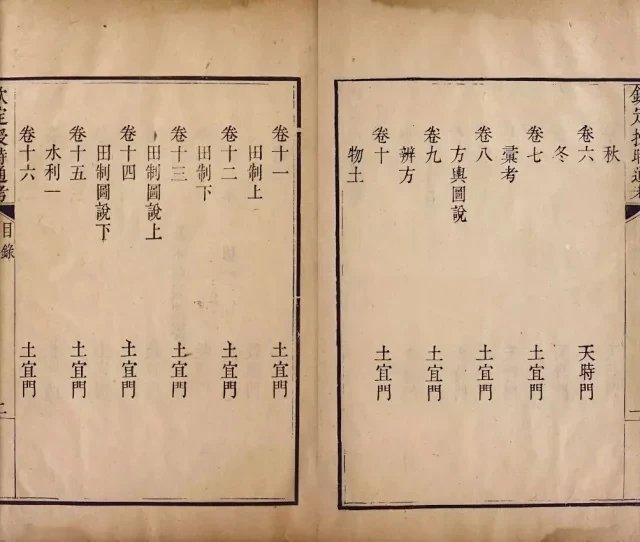 欽定授時通考
秋
卷六 天時門
冬
卷七 土宜門
彙考
卷八 土宜門
方輿圖說
卷九 土宜門
辨方
卷十 土宜門
物土
卷十一 土宜門
田制上
卷十二 土宜門
田制下
卷十三 土宜門
田制圖說上
卷十四 土宜門
田制圖說下
卷十五 土宜門
水利一
卷十六 土宜門
欽定授時通考 目錄